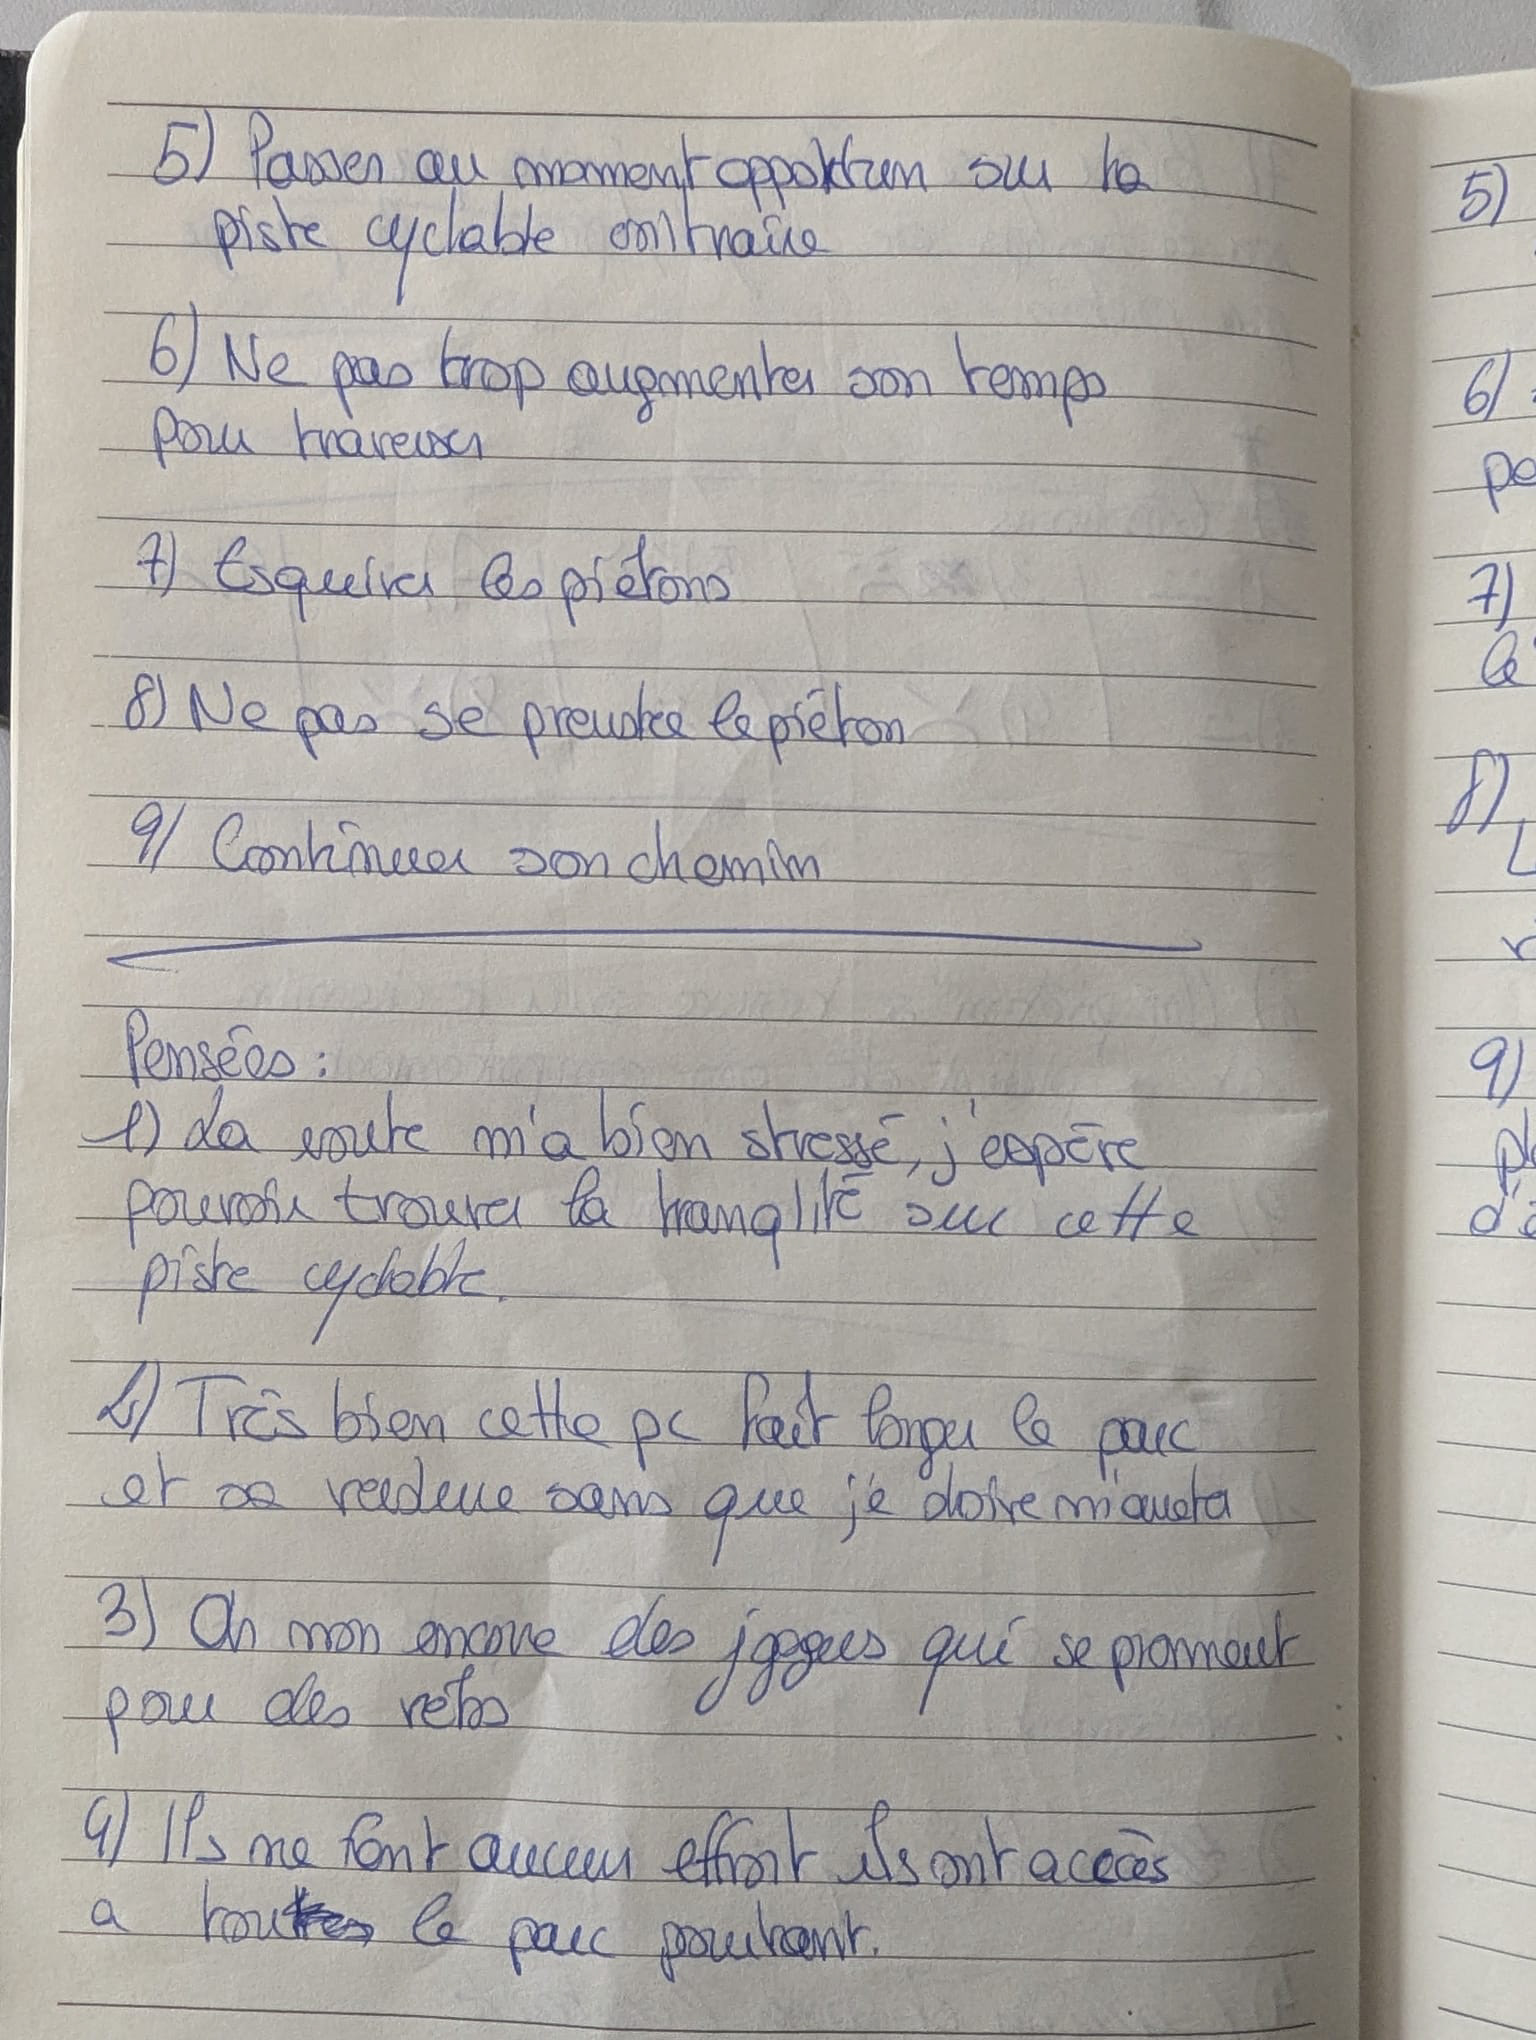 5) Passer au moment opportun sur la
piste cyclable contraire
6) Ne pas trop augmenter son temps
pour traverser
7) Esquiver les piétons
8) Ne pas se prendre le piéton
9) Continuer son chemin
Pensées :
1) La route m'a bien stressé, j'espère
pouvoir trouver la tranqlité sur cette
piste cyclable.
2) Très bien cette pc fait longer le parc
et sa verdure sans que je doive m'arreter
3) Oh non encore des joggers qui se promnent
pour des vélos
4) Ils ne font aucun effort ils ont accès
a tout le parc pourtant.
5)
6)
pe
7)
le
8)
L
9)
pl